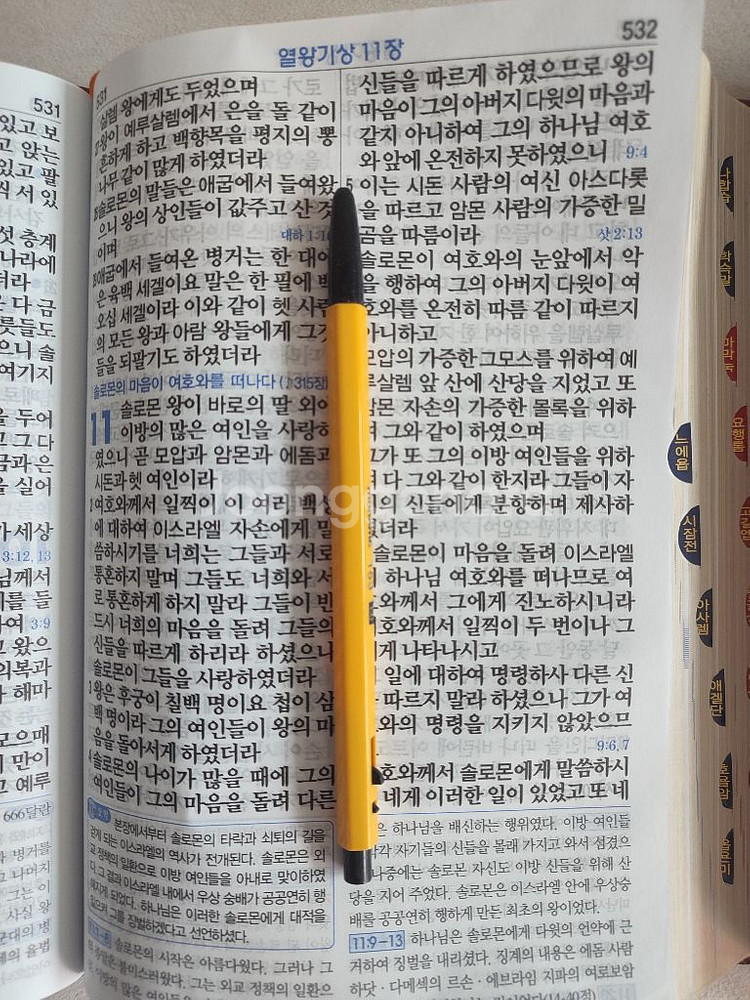 532
열왕기상 11장
531
살렘 왕에게도 두었으며
왕이 예루살렘에서 은을 돌 같이
흔하게 하고 백향목을 평지의 뽕
나무 같이 많게 하였더라
솔로몬의 말들은 애굽에서 들여왔
으니 왕의 상인들이 값주고 산 것
이며
대하 1:16
애굽에서 들여온 병거는 한 대에
은 육백 세겔이요 말은 한 필에 백
오십 세겔이라 이와 같이 헷 사람
의 모든 왕과 아람 왕들에게 그것
들을 되팔기도 하였더라
솔로몬의 마음이 여호와를 떠나다
11 솔로몬 왕이 바로의 딸 외에
이방의 많은 여인을 사랑하
였으니 곧 모압과 암몬과 에돔과
시돈과 헷 여인이라
2 여호와께서 일찍이 이 여러 백성
에 대하여 이스라엘 자손에게 말
씀하시기를 너희는 그들과 서로
통혼하지 말며 그들도 너희와 서
로 통혼하게 하지 말라 그들이 반
드시 너희의 마음을 돌려 그들의
신들을 따르게 하리라 하셨으나
솔로몬이 그들을 사랑하였더라
3 왕은 후궁이 칠백 명이요 첩이 삼
백 명이라 그의 여인들이 왕의 마
음을 돌아서게 하였더라
4 솔로몬의 나이가 많을 때에 그의
여인들이 그의 마음을 돌려 다른
신들을 따르게 하였으므로 왕의
마음이 그의 아버지 다윗의 마음과
같지 아니하여 그의 하나님 여호
와 앞에 온전하지 못하였으니 9:4
5 이는 시돈 사람의 여신 아스다롯
을 따르고 암몬 사람의 가증한 밀
곰을 따름이라 삿 2:13
솔로몬이 여호와의 눈앞에서 악
을 행하여 그의 아버지 다윗이 여
호와를 온전히 따름 같이 따르지
아니하고
모압의 가증한 그모스를 위하여 예
루살렘 앞 산에 산당을 지었고 또
암몬 자손의 가증한 몰록을 위하
여 그와 같이 하였으며
그가 또 그의 이방 여인들을 위하
여 다 그와 같이 한지라 그들이 자
기의 신들에게 분향하며 제사하
였더라
솔로몬이 마음을 돌려 이스라엘
하나님 여호와를 떠나므로 여
호와께서 그에게 진노하시니라
여호와께서 일찍이 두 번이나 그
에게 나타나시고
일에 대하여 명령하사 다른 신
따르지 말라 하셨으나 그가 여
호와의 명령을 지키지 않았으므
9:6, 7
여호와께서 솔로몬에게 말씀하시
네게 이러한 일이 있었고 또 네
본장에서부터 솔로몬의 타락과 쇠퇴의 길을
걷게 되는 이스라엘의 역사가 전개된다. 솔로몬은 외
교 정책의 일환으로 이방 여인들을 아내로 맞이하였
다. 그 결과 이스라엘 내에서 우상 숭배가 공공연히 행
해지게 되었다. 하나님은 이러한 솔로몬에게 대적을
일으켜 그를 징벌하겠다고 선언하셨다.
솔로몬의 시작은 아름다웠다. 그러나 그
그는 외교 정책의 일환으
은 하나님을 배신하는 행위였다. 이방 여인들
각각 자기들의 신들을 몰래 가지고 와서 섬겼으
나중에는 솔로몬 자신도 이방 신들을 위해 산
당을 지어 주었다. 솔로몬은 이스라엘 안에 우상숭
배를 공공연히 행하게 만든 최초의 왕이었다.
11:9-13 하나님은 솔로몬에게 다윗의 언약에 근
거하여 징벌을 내리셨다. 징계의 내용은 에돔 사람
하닷·다메섹의 르손·에브라임 지파의 여로보암
531
있고 보
고 앉는
있고 팔
서 있
섯 층계
나라에
더라
다 금
릇들도
으니 솔
여기지
을 두어
고 그 다
금과 은
을 실어
가 세상
3:12, 13
님께서
를 들
여 3:9
고 왔으
의복과
해마
모으매
만이
예루
666달란
병거를
나머지
그는 이
사실 왕
군대의 병
의 율법
느에욥
시잠전
아사렘
애겔단
호욜암
옵요미
나학슥
학슥말
마막눅
요행롬